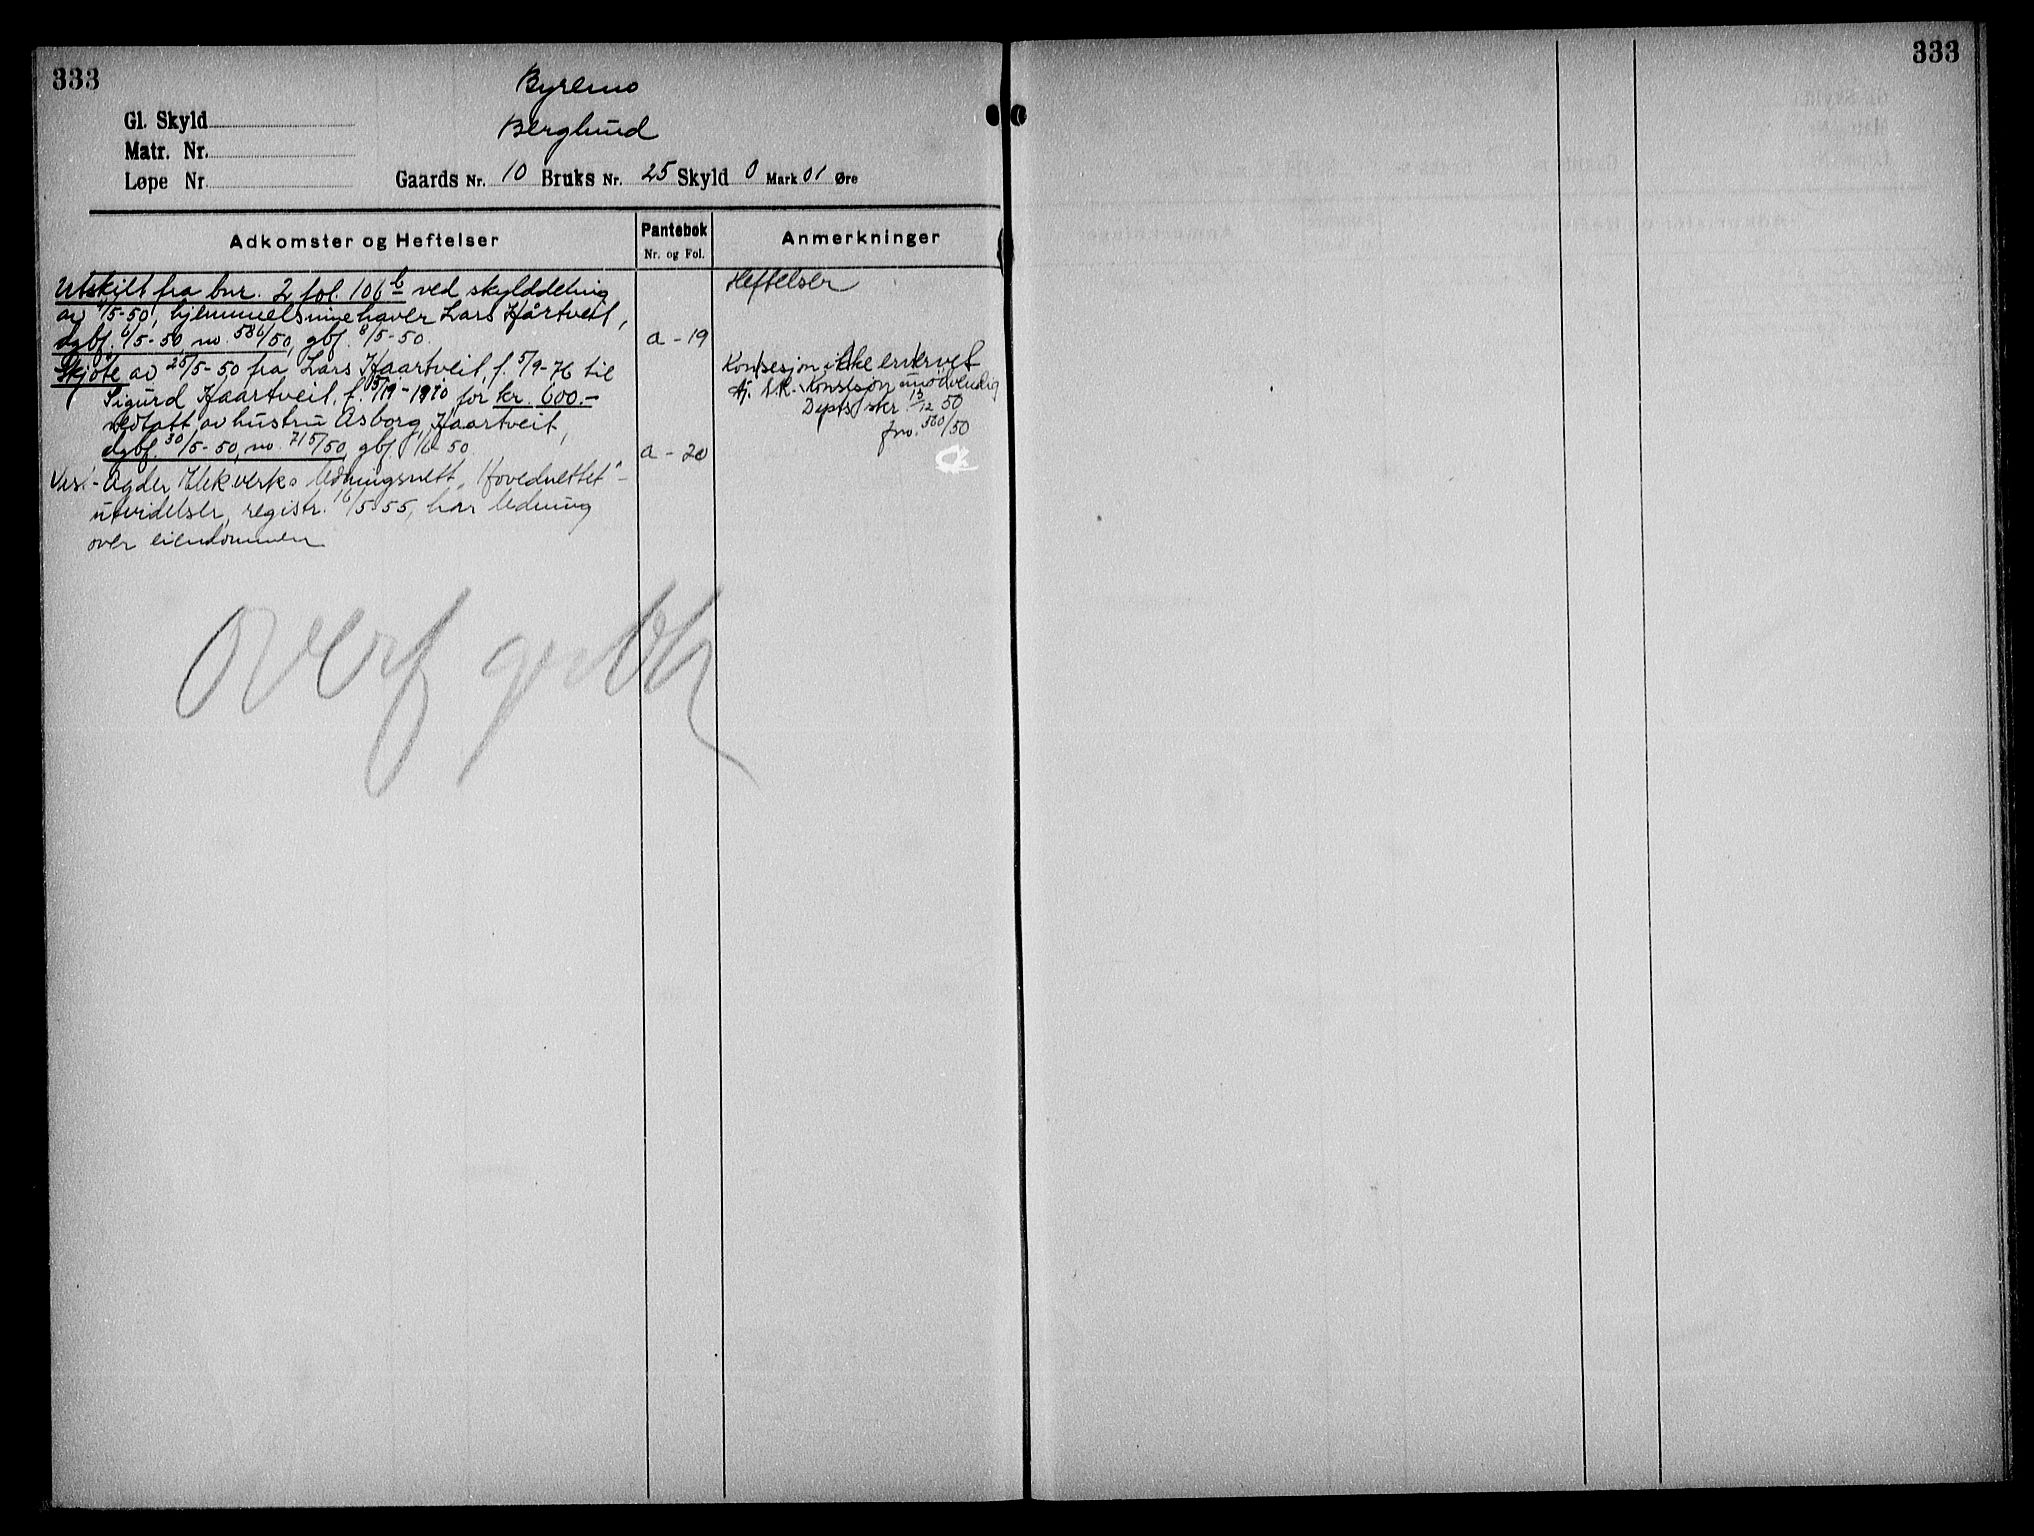 333
333
Byremo
Berglund
Gl. Skyld
Matr. Nr.
Løpe Nr
Gaards Nr. 10 Bruks Nr. 25 Skyld 0 Mark 01 Øre
Adkomster og Heftelser
Pantebok
Nr. og Fol.
Anmerkninger
Utskilt fra bnr. 2 fol. 106 b ved skylddeling
av /5-50, hjemmelsinnehaver Lars Hårtveit,
dgbf. 6/5-50 no. 586/50, gbf. 8/5-50.
a - 19
Heftelser
Skjøte av 25/5-50 fra Lars Haartveit, f. 5/9-76 til
Sigurd Haartveit, f. 15/9-1910 for kr. 600.-
vedtatt av hustru Asborg Haartveit,
dgbf. 30/5-50, no 715/50, gbf. 1/6-50.
a - 20
Konsesjon ikke ervervet
Konsesjon unødvendig
Depts skr. 13/12 50
jno. 560/50
Agder Elekverks ledningsnett "Hovednettet" -
utvidelser, registr. 16/5-55, har ledning
over eiendommen
Overf